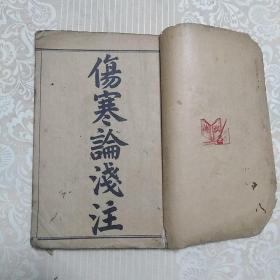 傷寒論淺注